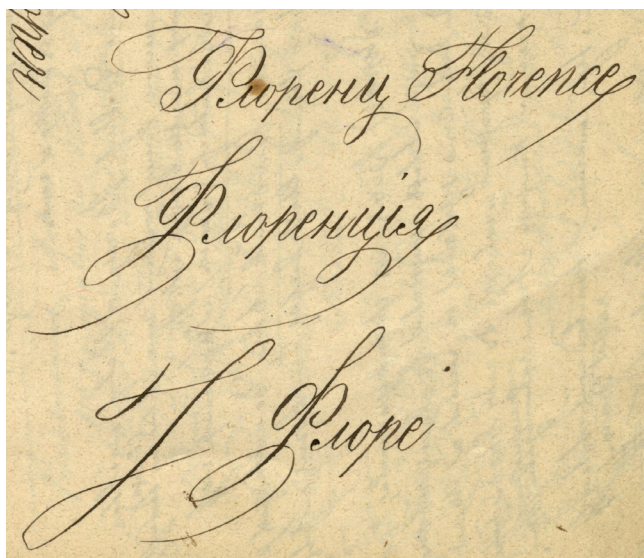 Флоренц Florence
Флоренція
Флоре